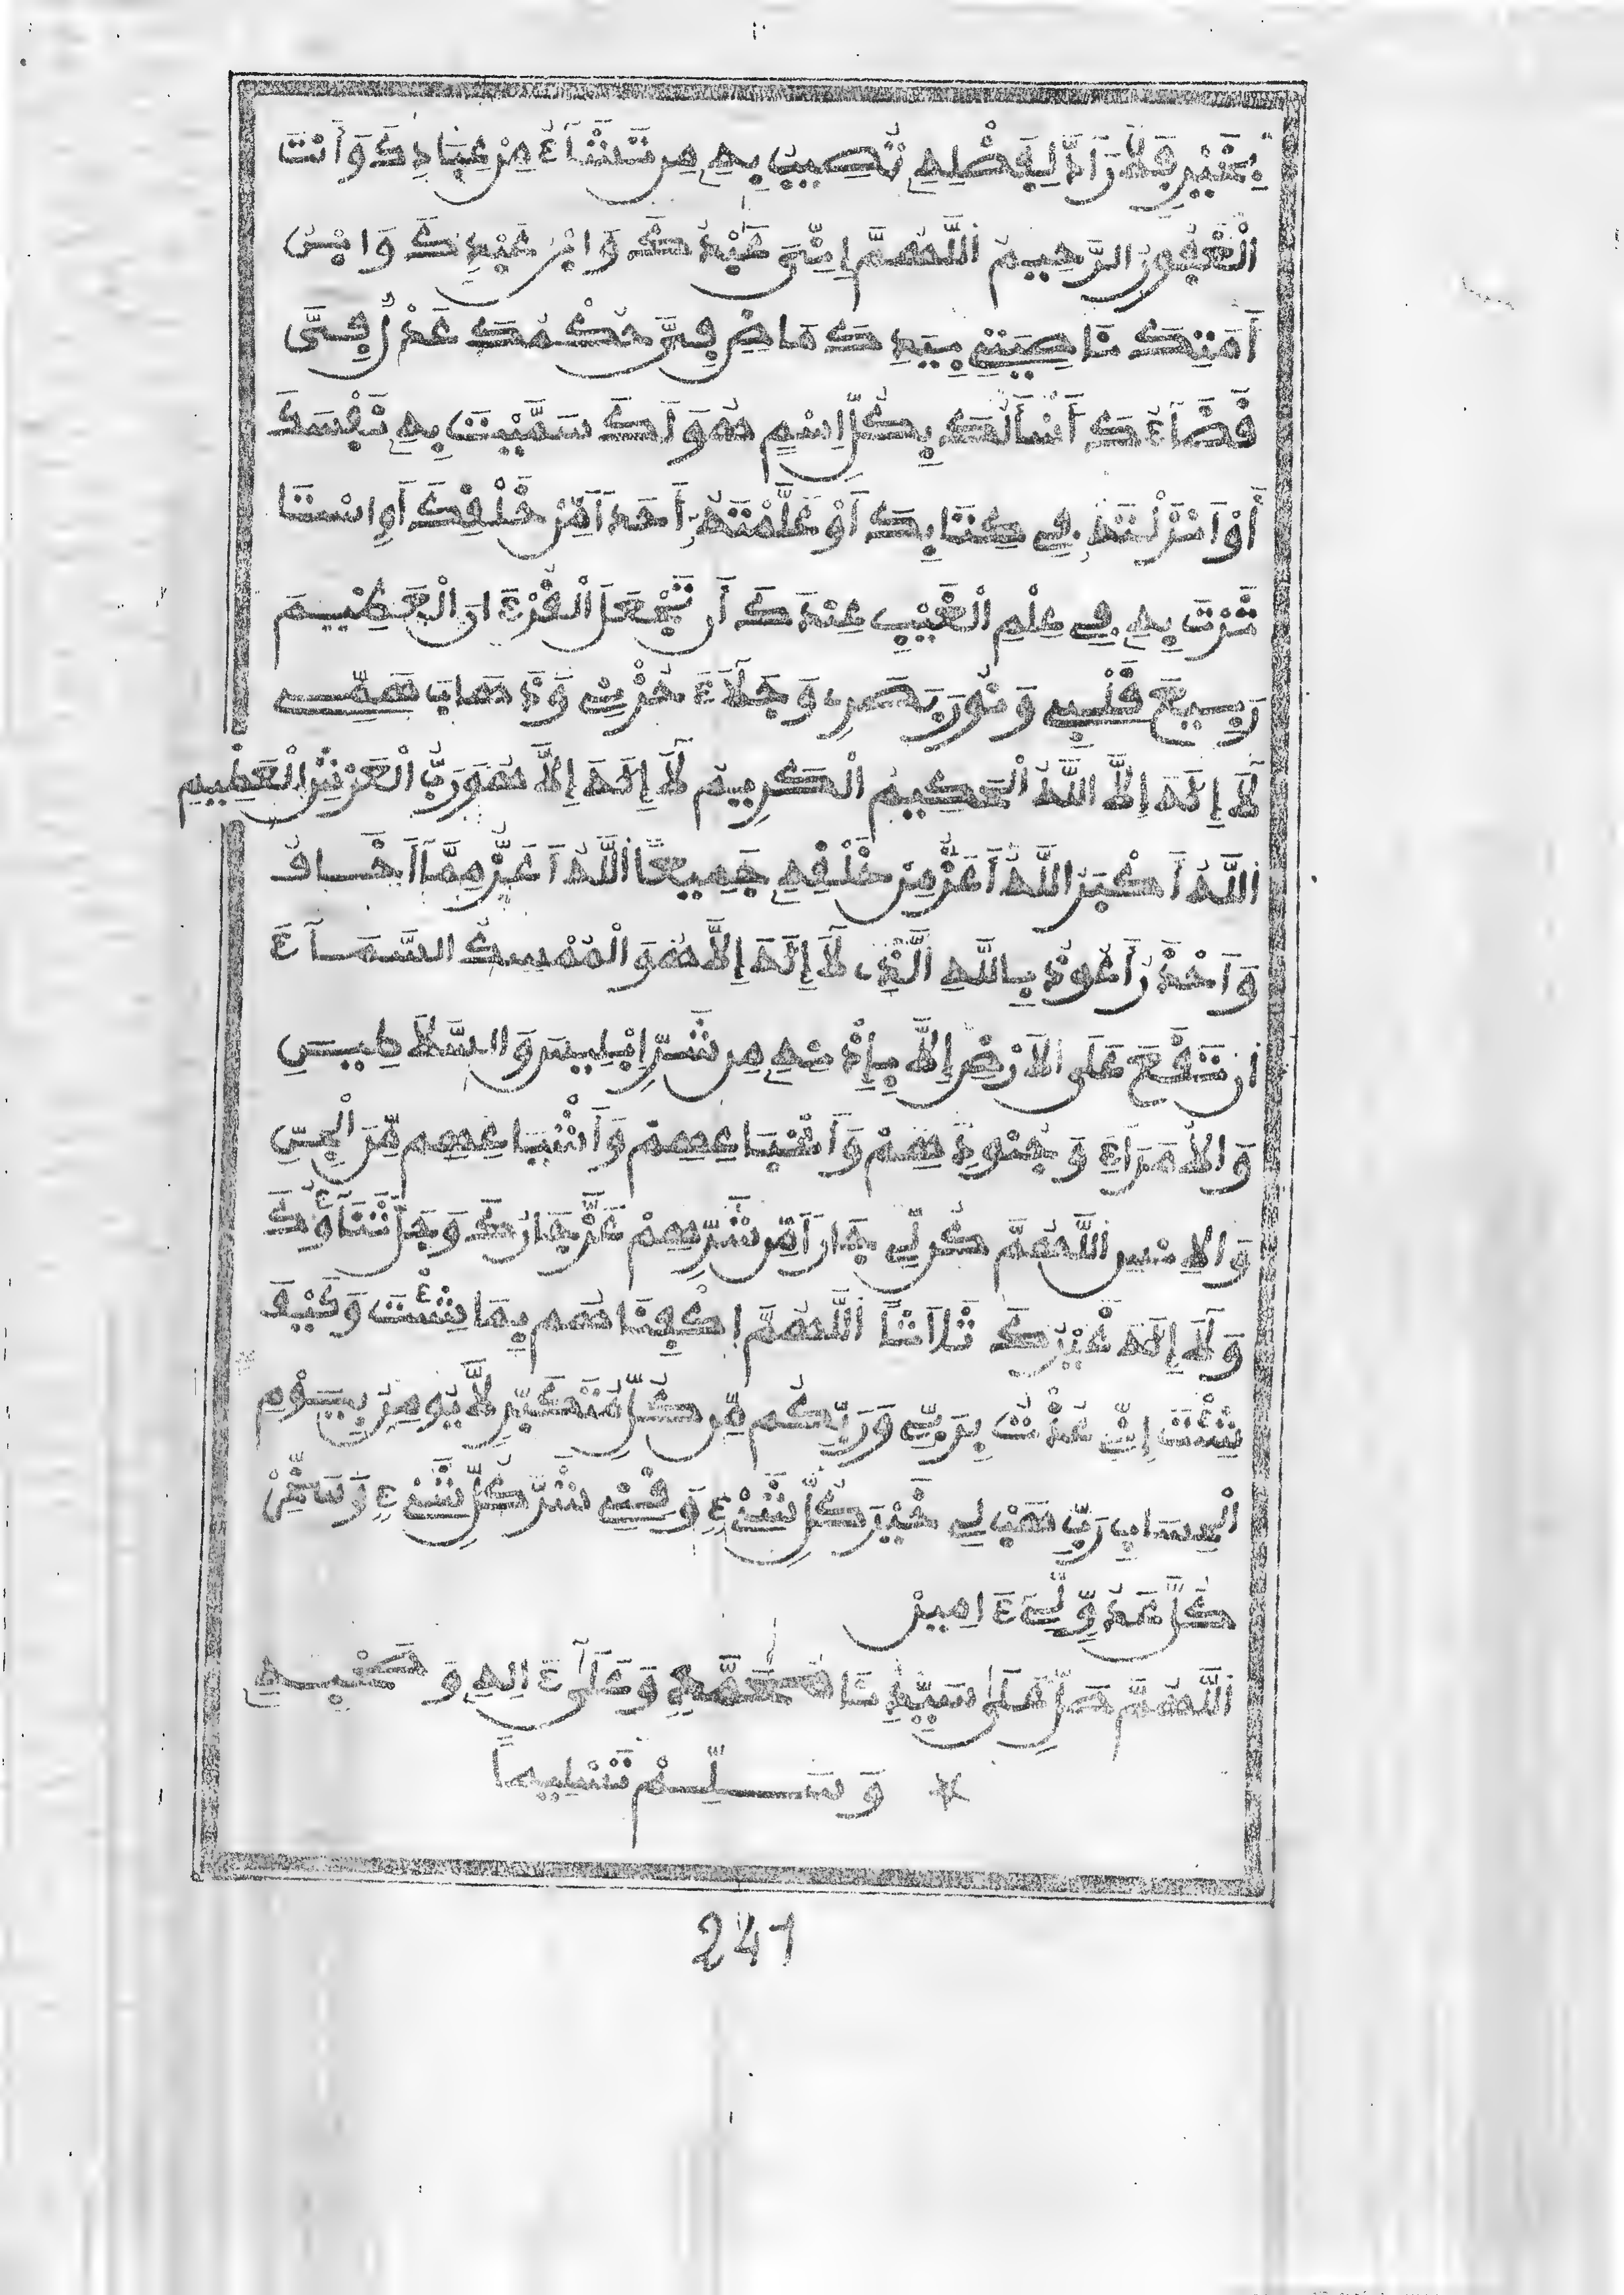 بِخَيْرٍ فَلاَ رَآدَّ لِفَضْلِهِ تُصِيبُ بِهِ مَن تَشَآءُ مِنْ عِبَادِكَ وَأَنْتَ
الْغَفُورُ الرَّحِيمُ اللَّهُمَّ إِنِّي عَبْدُكَ وَابْنُ عَبْدِكَ وَابْنُ
أَمَتِكَ نَاصِيَتِي بِيَدِكَ مَاضٍ فِيَّ حُكْمُكَ عَدْلٌ فِيَّ
قَضَآءُكَ أَسْأَلُكَ بِكُلِّ اسْمٍ هُوَ لَكَ سَمَّيْتَ بِهِ نَفْسَكَ
أَوْ أَنْزَلْتَهُ فِي كِتَابِكَ أَوْ عَلَّمْتَهُ أَحَداً مِّنْ خَلْقِكَ أَوِ اسْتَا
ثَرْتَ بِهِ فِي عِلْمِ الْغَيْبِ عِنْدَكَ أَن تَجْعَلَ الْقُرْءَانَ الْعَظِيمَ
رَبِيعَ قَلْبِي وَنُورَ بَصَرِي وَجَلاَءَ حُزْنِي وَذَهَابَ هَمِّي
لاَ إِلَهَ إِلاَّ اللَّهُ الْحَكِيمُ الْكَرِيمُ لاَ إِلَهَ إِلاَّ هُوَ رَبُّ الْعَرْشِ الْعَظِيمِ
اللَّهُ أَكْبَرُ اللَّهُ أَعَزُّ مِنْ خَلْقِهِ جَمِيعًا اللَّهُ أَعَزُّ مِمَّا أَخَافُ
وَأَحْذَرُ أَعُوذُ بِاللَّهِ الَّذِي لاَ إِلَهَ إِلاَّ هُوَ الْمُمْسِكُ السَّمَآءَ
أَن تَقَعَ عَلَى الاَرْضِ إِلاَّ بِإِذْنِهِ مِن شَرِّ إِبْلِيسَ وَالسَّلاَطِيسِ
وَالأُمَرَآءِ وَجُنُودِهِمْ وَأَتْبَاعِهِمْ وَأَشْيَاعِهِم مِّنَ الْجِنِّ
وَالاِنْسِ اللَّهُمَّ كُن لِّي جَاراً مِّن شَرِّهِمْ عَزَّ جَارُكَ وَجَلَّ ثَنَآؤُكَ
وَلاَ إِلَهَ غَيْرُكَ ثَلاَثاً اللَّهُمَّ اكْفِنَاهُم بِمَا شِئْتَ وَكَيْفَ
شِئْتَ إِنِّي عُذْتُ بِرَبِّي وَرَبِّكُم مِّن كُلِّ مُتَكَبِّرٍ لاَّ يُومِنُ بِيَوْمِ
الْحِسَابِ رَبِّ هَبْ لِي خَيْرَ كُلِّ شَيْءٍ وَقِنِي شَرَّ كُلِّ شَيْءٍ وَسَخِّرْ
كُلَّ عَدُوٍّ لِّي ءَامِين
اللَّهُمَّ صَلِّ عَلَى سَيِّدِنَا مُحَمَّدٍ وَعَلَى ءَالِهِ وَصَحْبِهِ
* وَسَلِّمْ تَسْلِيماً
241